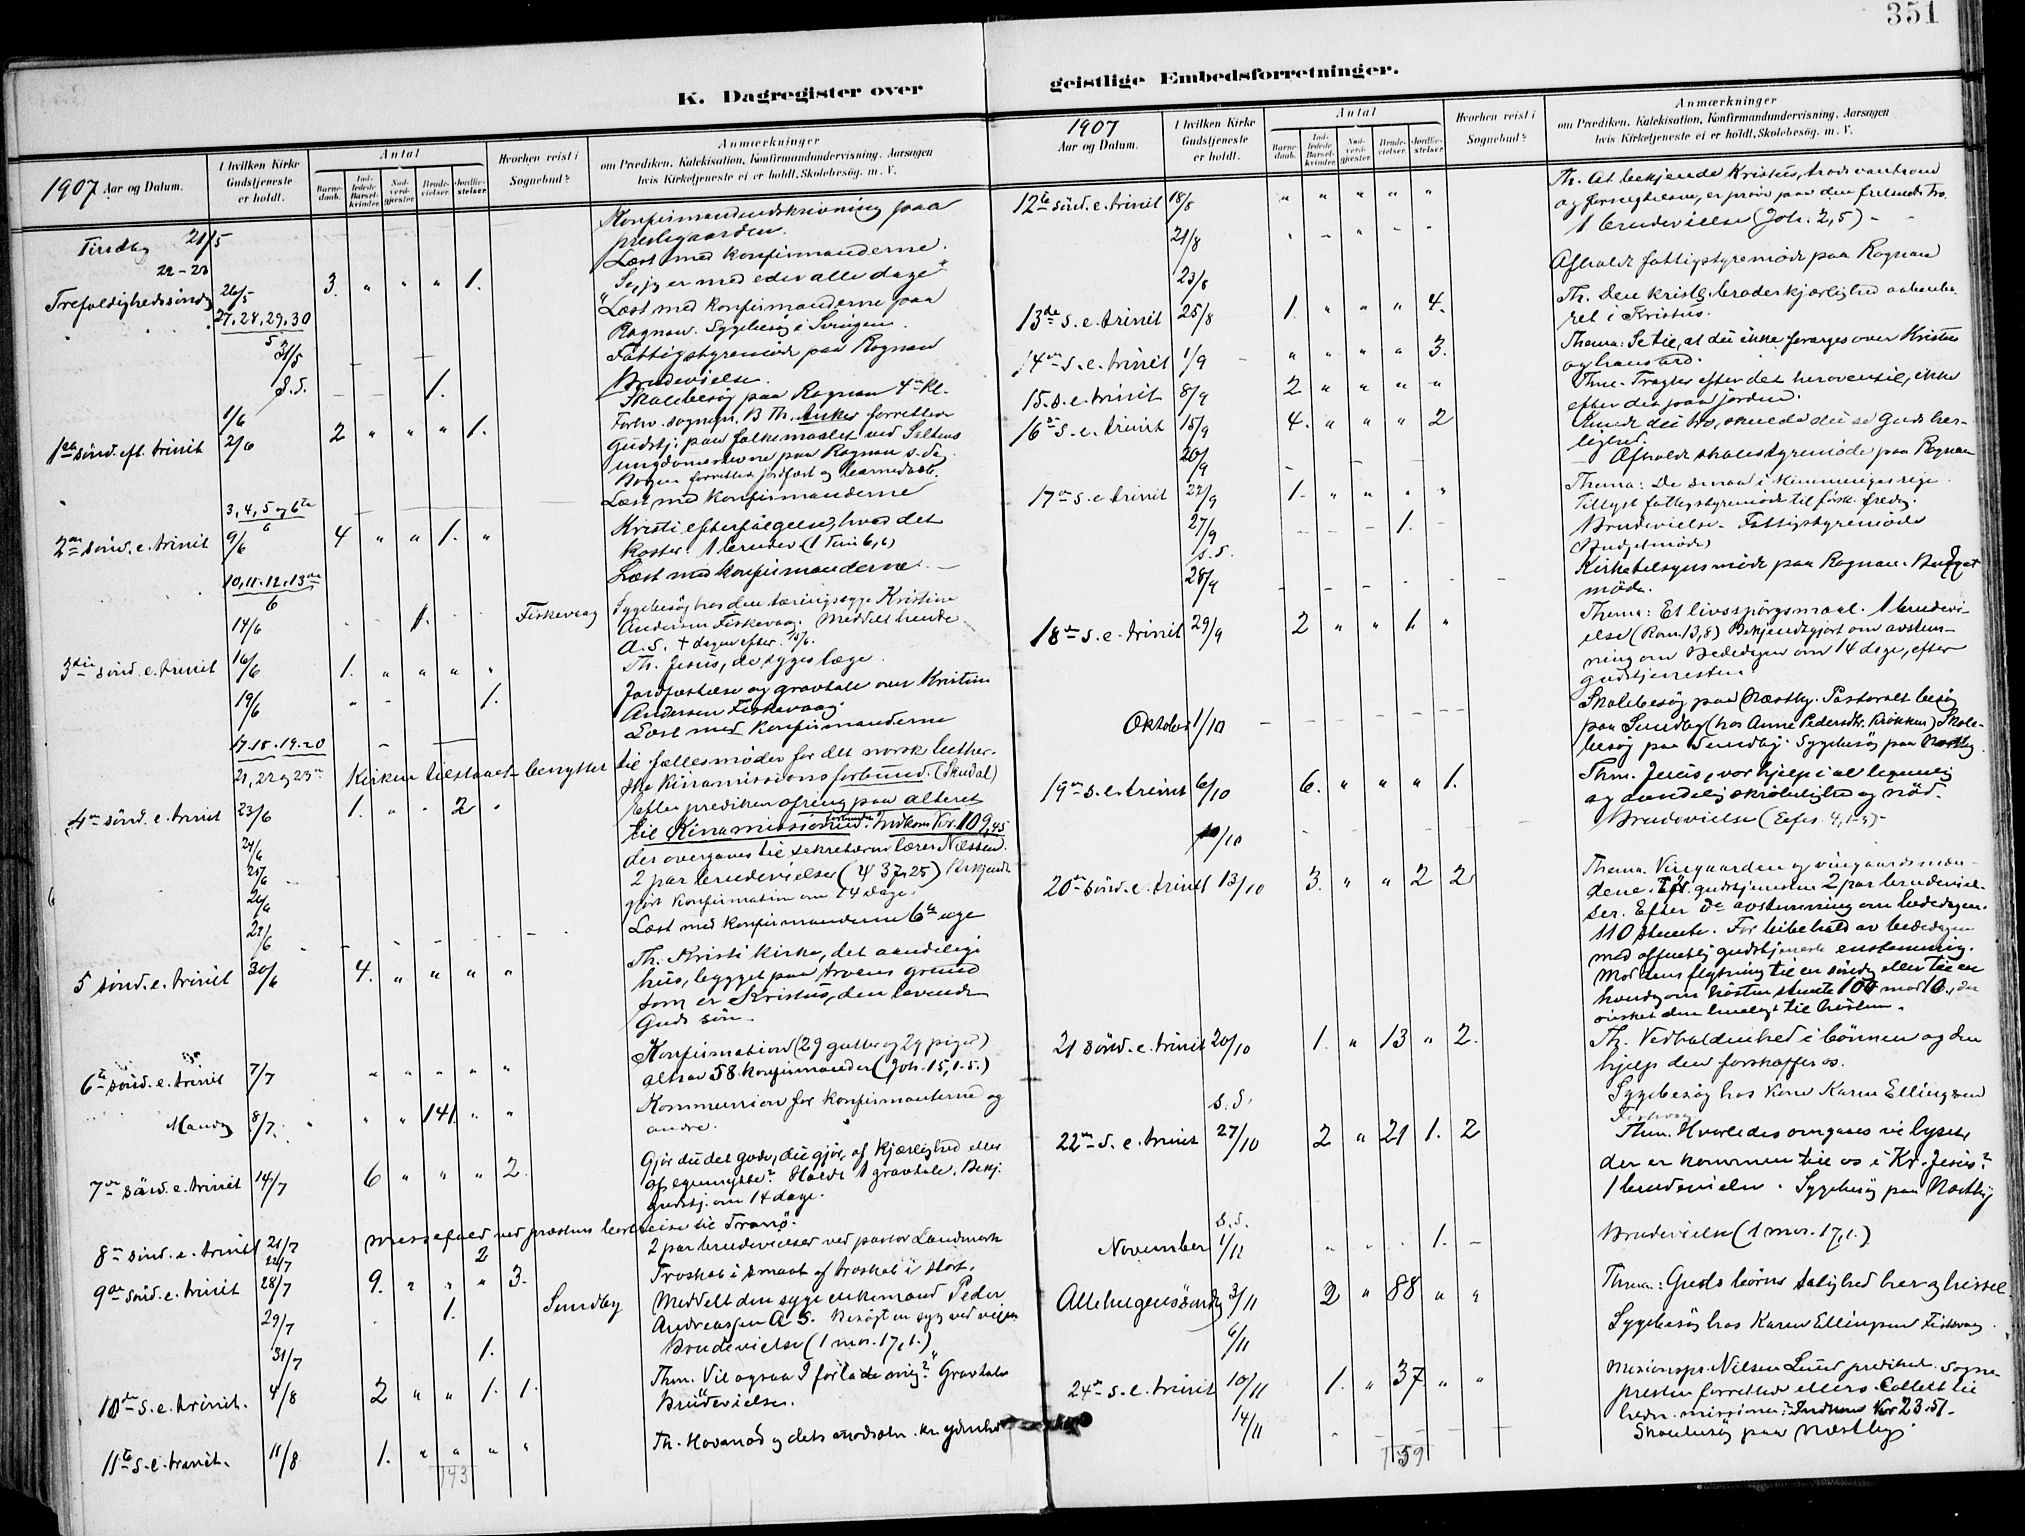 351
K. Dagregister over
geistlige Embedsforretninger.
1907 Aar og Datum.
I hvilken Kirke Gudstjeneste er holdt.
Antal
Barnedaab.
Indledede Barselkvinder.
Nadverdgjester.
Brudevielser.
Jordfæstelser.
Hvorhen reist i Sognebud?
Anmærkninger
om Prædiken, Katekisation, Konfirmandundervisning, Aarsagen
hvis Kirketjeneste ei er holdt, Skolebesøg. m. V.
Tirsdag 21/5 Konfirmandindskrivning paa
prestegaarden.
22-23 Læst med konfirmanderne.
Trefoldighedssøndag 26/5 3. " " " 1. Se, jeg er med eder alle dage"
27. 28. 29. 30/5 Læst med konfirmanderne paa
Rognan. Sygebesøg i Svingen.
31/5 Fattigstyremøde paa Rognan
S. D. 1. Brudevielse.
1/6 Skolebesøg paa Rognan 4de kl.
1ste sønd. eft. trinit 2/6 2 " " " 1. Forhv. sognepr. B. Th. Anker forretter
Gudstj. paa folkemaalet ved Saltens
ungdomsstevne paa Rognan s. dag.
Bogen forrettet jordfæst og barnedaab.
3, 4, 5 og 6te/6 Læst med konfirmanderne
2den sønd. e. trinit 9/6 4 " " 1. " Kristi efterfølgelse, hvad det
koster. 1 brudev. (1 Tim 6,6)
10. 11. 12. 13de/6 Læst med konfirmanderne.
14/6 1. Fiskevaag Sygebesøg hos den tæringssyge Kristine
Andersen Fiskevaag. Meddelt hende
A. S. † dagen efter 15/6.
3die sønd. e. trinit 16/6 1. " " " " Th. Jesus, de syges læge.
19/6 1. Jordfæstelse og gravtale over Kristine
Andersen Fiskevaag.
17. 18. 19. 20 Læst med konfirmanderne
21, 22 og 23de Kirken tilstaaet benyttet til fællesmøder for det norsk luther-
ske Kinamissionsforbund. (Skudal)
4de sønd. e. trinit 23/6 1. " " 2 " Efter prediken ofring paa alteret
til Kinamissionsforbundet. Indkom Kr. 109,45
24/6 der overgaves til sekretæren lærer Nilssen.
25/6 2 par brudevielser (ψ 37,25) Bekjendt-
26/6 gjort konfirmation om 14 dage.
27/6 Læst med konfirmanderne 6te uge
5 sønd. e. trinit 30/6 4. " " " " Th. Kristi kirke, det aandelige
hus, bygget paa troens grund
som er Kristus, den levende
Guds søn.
6te sønd. e. trinit 7/7 " " " " " Konfirmation (29 gutter og 29 piger)
altsaa 58 konfirmander (Joh. 15, 1-5.)
Mandag 8/7. " " 141. " " Kommunion for konfirmanterne og
andre.
7de sønd. e. trinit 14/7 6 " " " 2. Gjør du det gode, du gjør, af Kjærlighed eller
af egennytte? Holdt 1 gravtale. Bekj.
gudstj. om 14 dage.
8de sønd. e. trinit 21/7 messefald ved præstens bortreise til Tranø.
22/7 2 2 par brudevielser ved pastor Landmark
9de sønd. e. trinit 28/7 9. " " " 3. Troskab i smaat og troskab i stort.
29/7 1. Sundby Meddelt den syge enkemand Peder
Andreassen A. S. Besøgt en syg ved veien
31/7 1. Brudevielse (1 mos. 17, 1.)
10de s. e. trinit. 4/8 2 " " 1. 1. Thm. Vil ogsaa I forlade mig? Gravtale
Brudevielse.
11te s. e. trinit. 11/8 1. " " " " Th. Hovmod og dets modsætn. kr. ydmhed
143
1907
Aar og Datum.
I hvilken Kirke Gudstjeneste er holdt.
Antal
Barnedaab.
Indledede Barselkvinder.
Nadverdgjester.
Brudevielser.
Jordfæstelser.
Hvorhen reist i Sognebud?
Anmærkninger
om Prædiken, Katekisation, Konfirmandundervisning, Aarsagen
hvis Kirketjeneste ei er holdt, Skolebesøg. m. V.
12te sønd. e. trinit 18/8 " " " " " Th. At bekjende Kristus, trods vantroend
og fornegtelsen, er prøve paa den frelsende tro.
21/8 1 brudevielse (Joh. 2,5) -
23/8 Afholdt fattigstyremøde paa Rognan
13de s. e. trinit 25/8 1. " " " 4. Th. Den kristlig broderkjærlighed aabenba-
ret i Kristus.
14de s. e. trinit 1/9 " " " " 3. Thema: Se til, at du ikke forarges over Kristus
og hans ord.
15. s. e. trinit 8/9 2 " " " " Thm. Tragter efter det heroventil, ikke
efter det paa jorden.
16de s. e. trinit 15/9 4. " " " 2 Kunde du tro, skulde du se Guds her-
lighed.
20/9 Afholdt skolestyremøde paa Rognan
17de s. e. trinit 22/9 1. " " " " Thema: De smaa i Himmeriges rige.
Tillyst fattigstyremøde til førstk. fredag.
27/9 1. Brudevielse. Fattigstyremøde
S. D. (Budgetmøde)
28/9 Kirketilsynsmøde paa Rognan. Budget
møde.
18de s. e. trinit 29/9 2 " " 1. " Thema: Et livsspørgsmaal. 1 brudevi-
else (Rom. 13, 8) Bekjendtgjort om avstem-
ning om Bededagen om 14 dage, efter
gudstjenesten.
Oktober 1/10 Skolebesøg paa Næstby. Pastoralt besøg
paa Sundby (hos Anne Pedersdtr. Krokken) Skole-
besøg paa Sundby. Sygebesøg paa Næstby
19de s. e. trinit 6/10 6. " " " 1. Thm. Jesus, vor hjelp i al legemlig
og aandelig skrøbelighed og nød.
/10 Brudevielse (Eefes. 4, 1-3)-
20de sønd. e. trinit 13/10 3. " " 2 2 Thema. Vingaarden og vingaardsmæn-
dene. Før gudstjenesten 2 par brudeviel-
ser. Efter do avstemning om bededagen.
110 stemte. For bibehold av bededagen
med offentlig gudstjeneste enstemmig.
Mod dens flytning til en søndag eller til en
hverdag om høsten stemte 104 mod 6, der
ønsket den henlagt til høsten.
21 sønd. e. trinit 20/10 1. " 13 " 2. Th. Vedholdenhed i bønnen og den
hjelp den forskaffer os.
S. D. Sygebesøg hos Kone Karen Ellingsen
Fiskvaag
22de s. e. trinit 27/10 2 " 21 1. 2 Thm. Hvorledes omgaaes vi lyset,
der er kommen til os i Kr. Jesus?
S. D. 1 brudevielse. Sygebesøg paa Næstby
November 1/11 1. Brudevielse (1 mos. 17, 1.)
Allehelgenssøndag 3/11 2 " 88 " " Thema: Guds børns salighed her og hisset
6/11 Sygebesøg hos Karen Ellingsen Fiskvaag.
24de s. e. trinit 10/11 1. " 37 " " Missionspr. Nilsen Lund prediket. Sogne-
presten forrettet ellers. Collekt til
hedn. missionen. Indkom Kr 23,51.
14/11 Skolebesøg paa Næstby
159